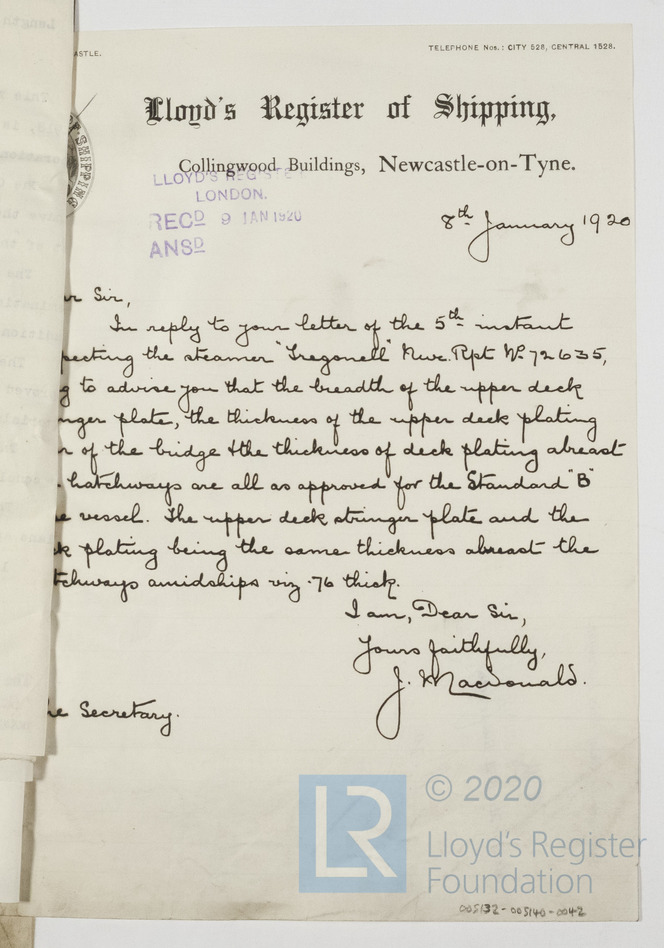 ASTLE.
TELEPHONE Nos.: CITY 528, CENTRAL 1528.
Lloyd's Register of Shipping,
Collingwood Buildings, Newcastle-on-Tyne.
LLOYD'S REGISTE
LONDON.
RECD 9 JAN 1920
ANSD
8th January 1920
ar Sir,
In reply to your letter of the 5th instant
pecting the steamer "Tregonell" Nwc. Rpt No 72635,
g to advise you that the breadth of the upper deck
nger plate, the thickness of the upper deck plating
r of the bridge & the thickness of deck plating abreast
hatchways are all as approved for the Standard "B"
e vessel. The upper deck stringer plate and the
ck plating being the same thickness abreast the
tchways amidships viz .76 thick.
I am, Dear Sir,
Yours faithfully,
J. Macdonald.
he Secretary.
© 2020
LR
Lloyd's Register
Foundation
005132-005140-0042